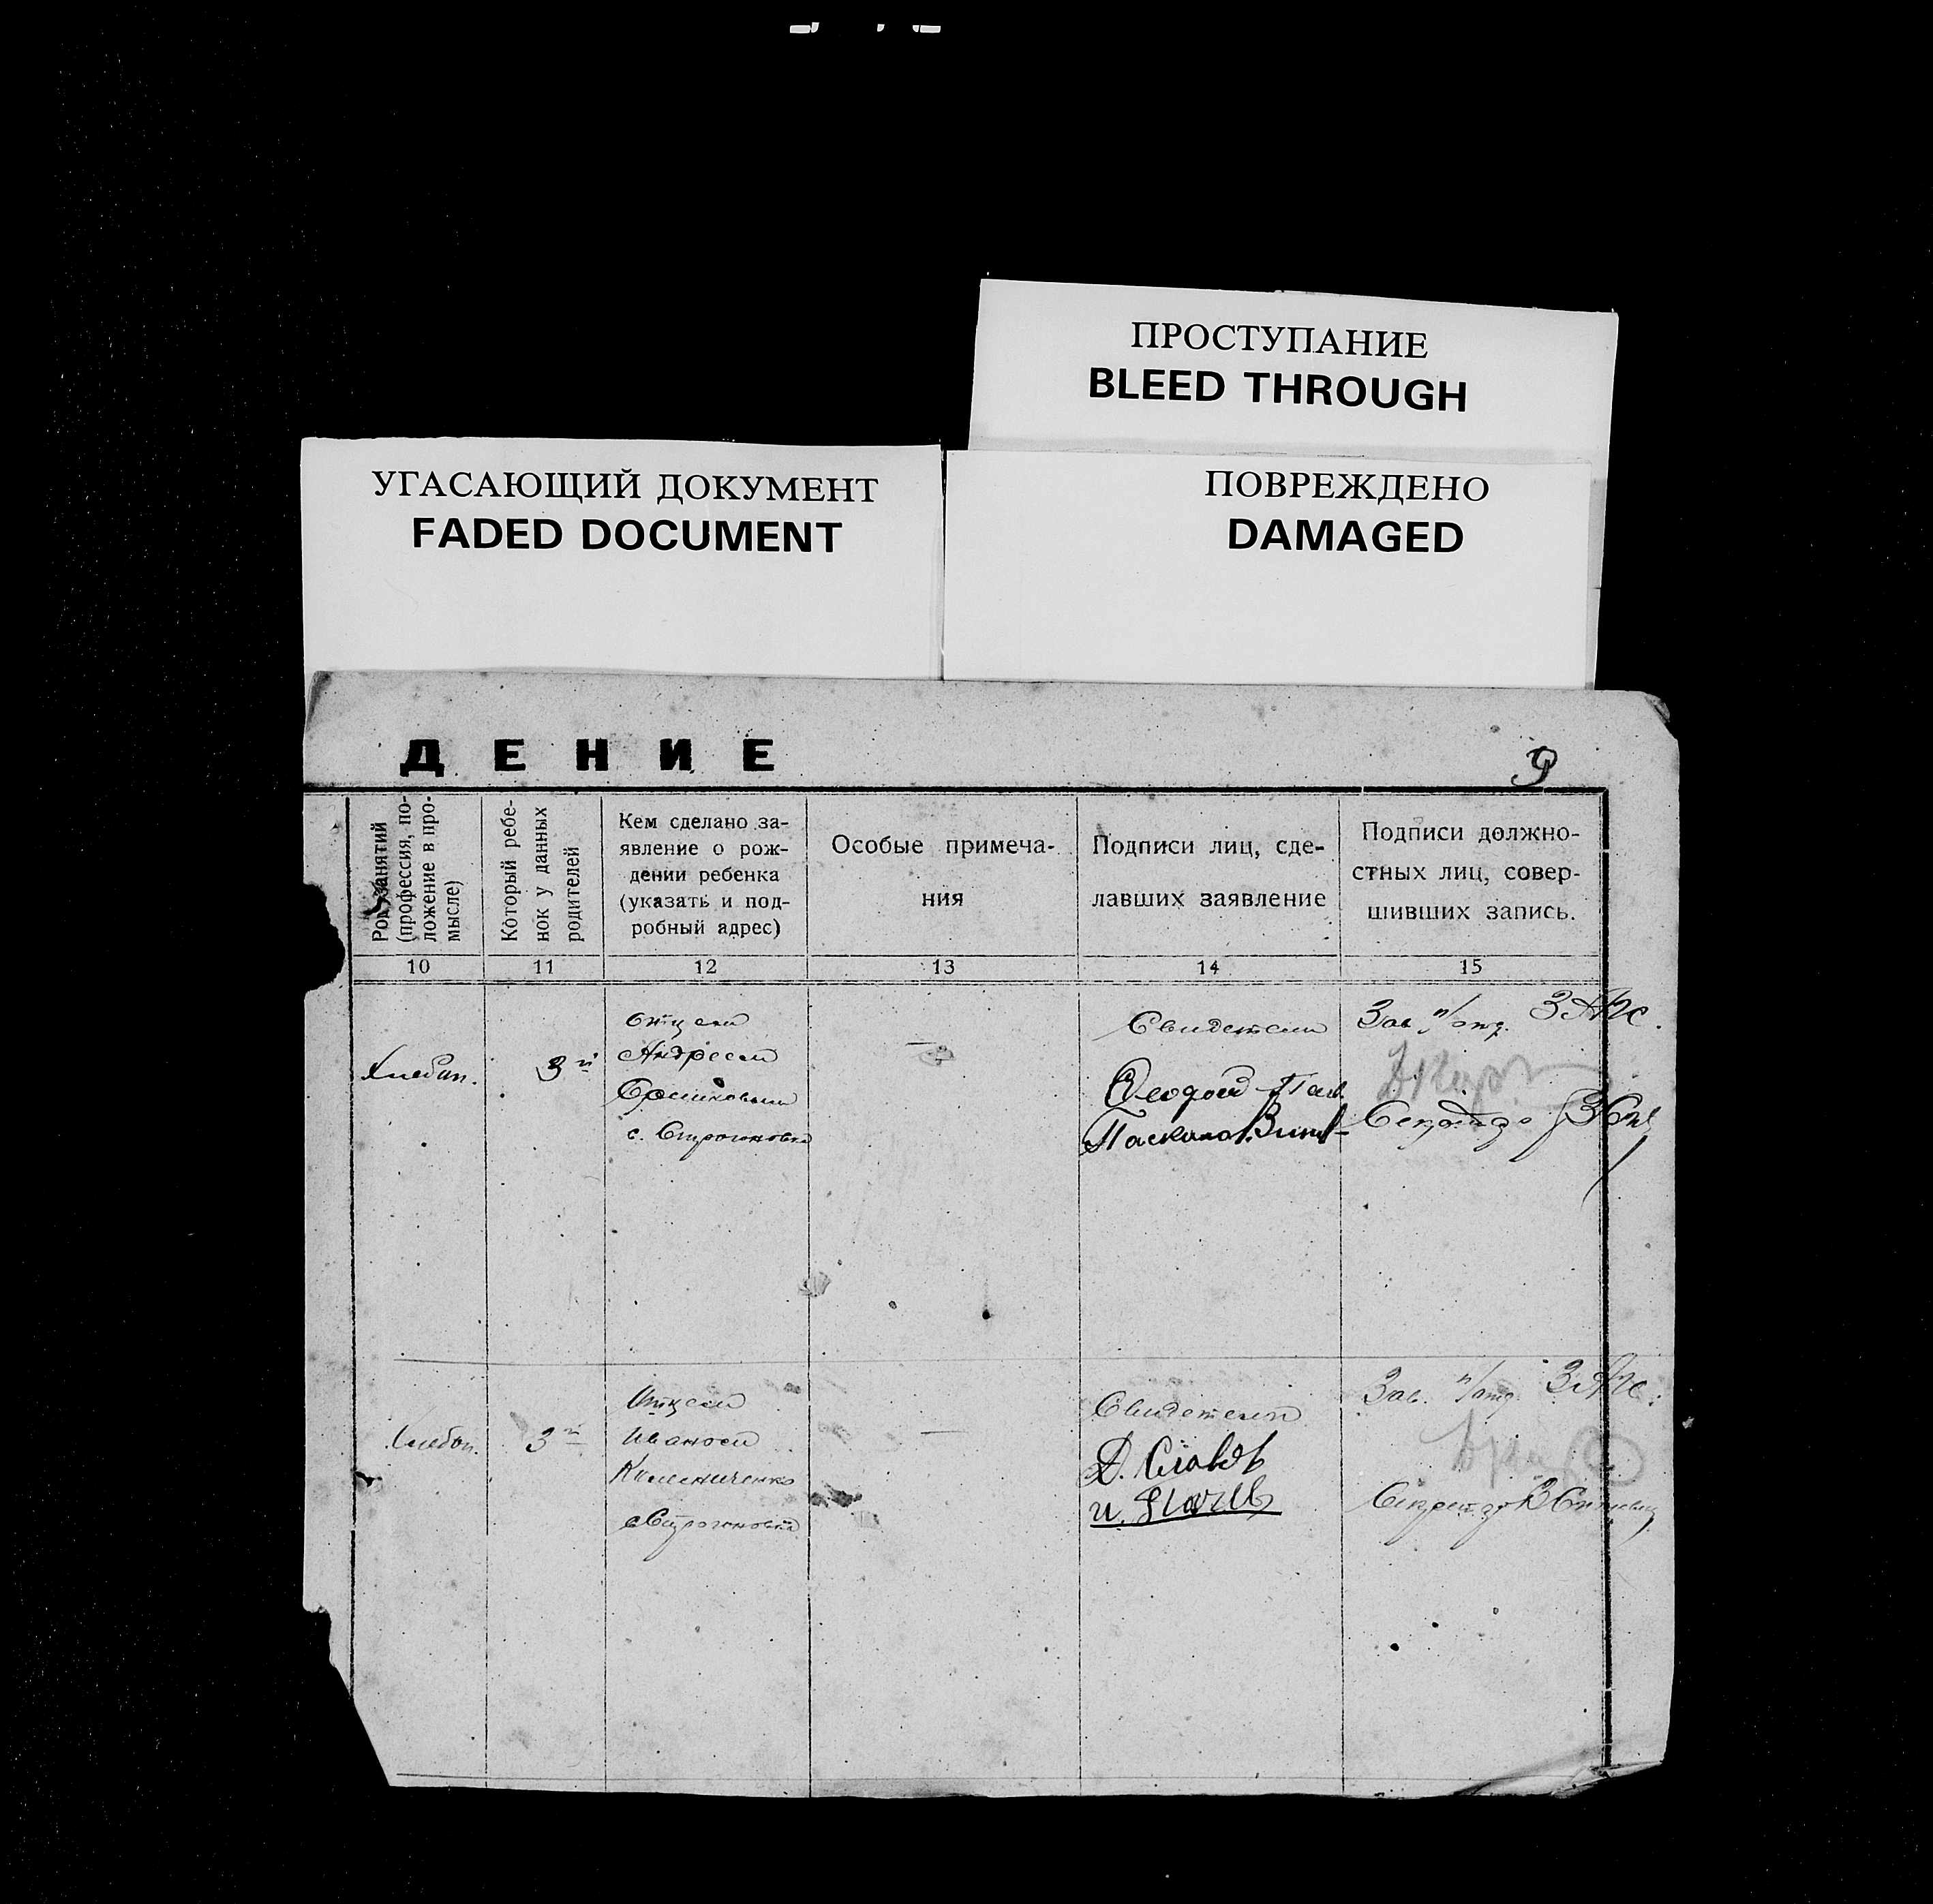 ПРОСТУПАНИЕ
BLEED THROUGH
УГАСАЮЩИЙ ДОКУМЕНТ
FADED DOCUMENT
ПОВРЕЖДЕНО
DAMAGED
ДЕНИЕ
9
Род занятий
(профессия, по-
ложение в про-
мысле)
Который ребе-
нок у данных
родителей
Кем сделано за-
явление о рож-
дении ребенка
(указать и под-
робный адрес)
Особые примеча-
ния
Подписи лиц, сде-
лавших заявление
Подписи должно-
стных лиц, совер-
шивших запись.
10
11
12
13
14
15
Хлебоп.
3й
Отцем
Андреем
с. Строгоновка
—
Свидетели
Зав. п/отд. ЗАГС.
Хлебоп.
3й
Отцем
Иваном
Колесниченко
с. Строгоновка
—
Свидетели
Зав. п/отд. ЗАГС.